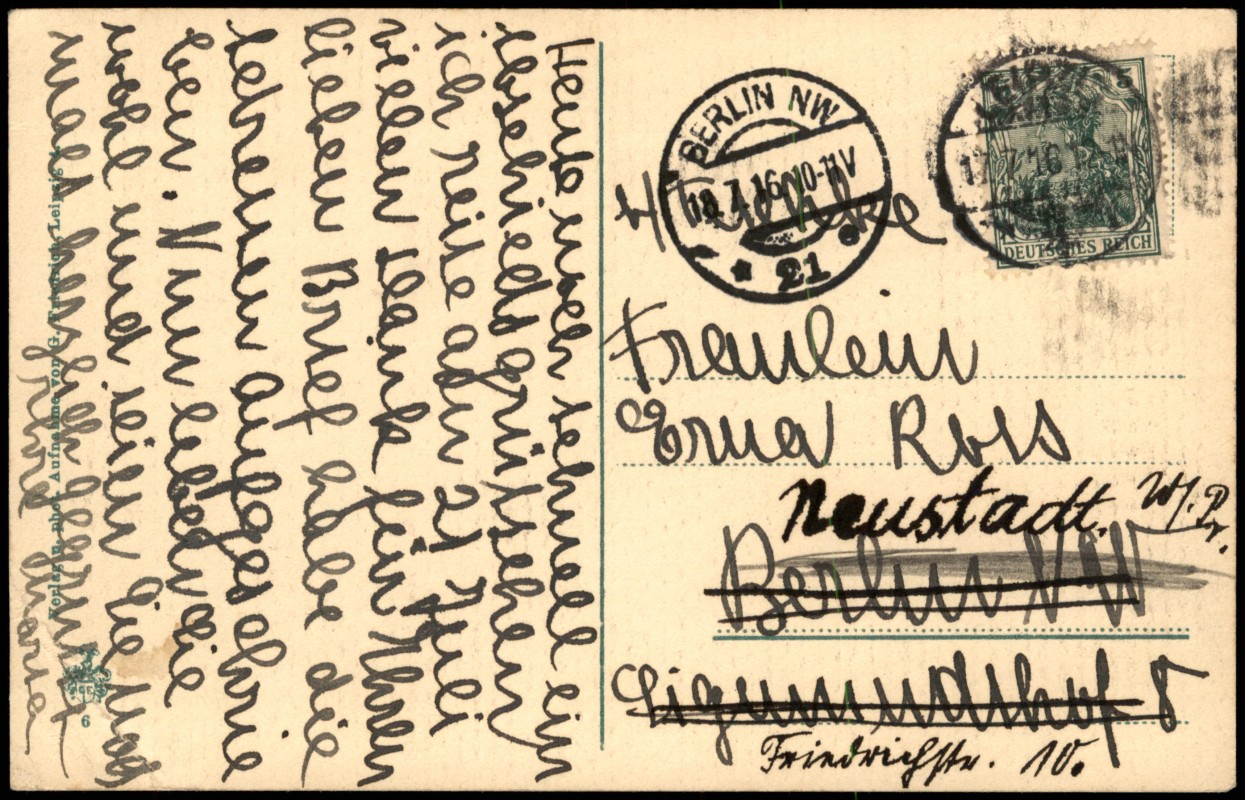 Heute noch schnel ein
abschiedsgrüßchen
ich Reise am 21 Juli
vielen Dank für Ihren
lieben Brief habe die
sehren aufgeschrie
ben. Nun leben Sie
wohl und seien Sie
herzlich
Verlag u. phot. Aufnahme von G. Friedrich, Leipzig
6
BERLIN NW
18.7.16. 10-11V
* 21
5
DEUTSCHES REICH
Fräulein
Erna Ross
Neustadt. W/.Pr.
Berlin NW
Sigmundshof 8
Friedrichstr. 10.